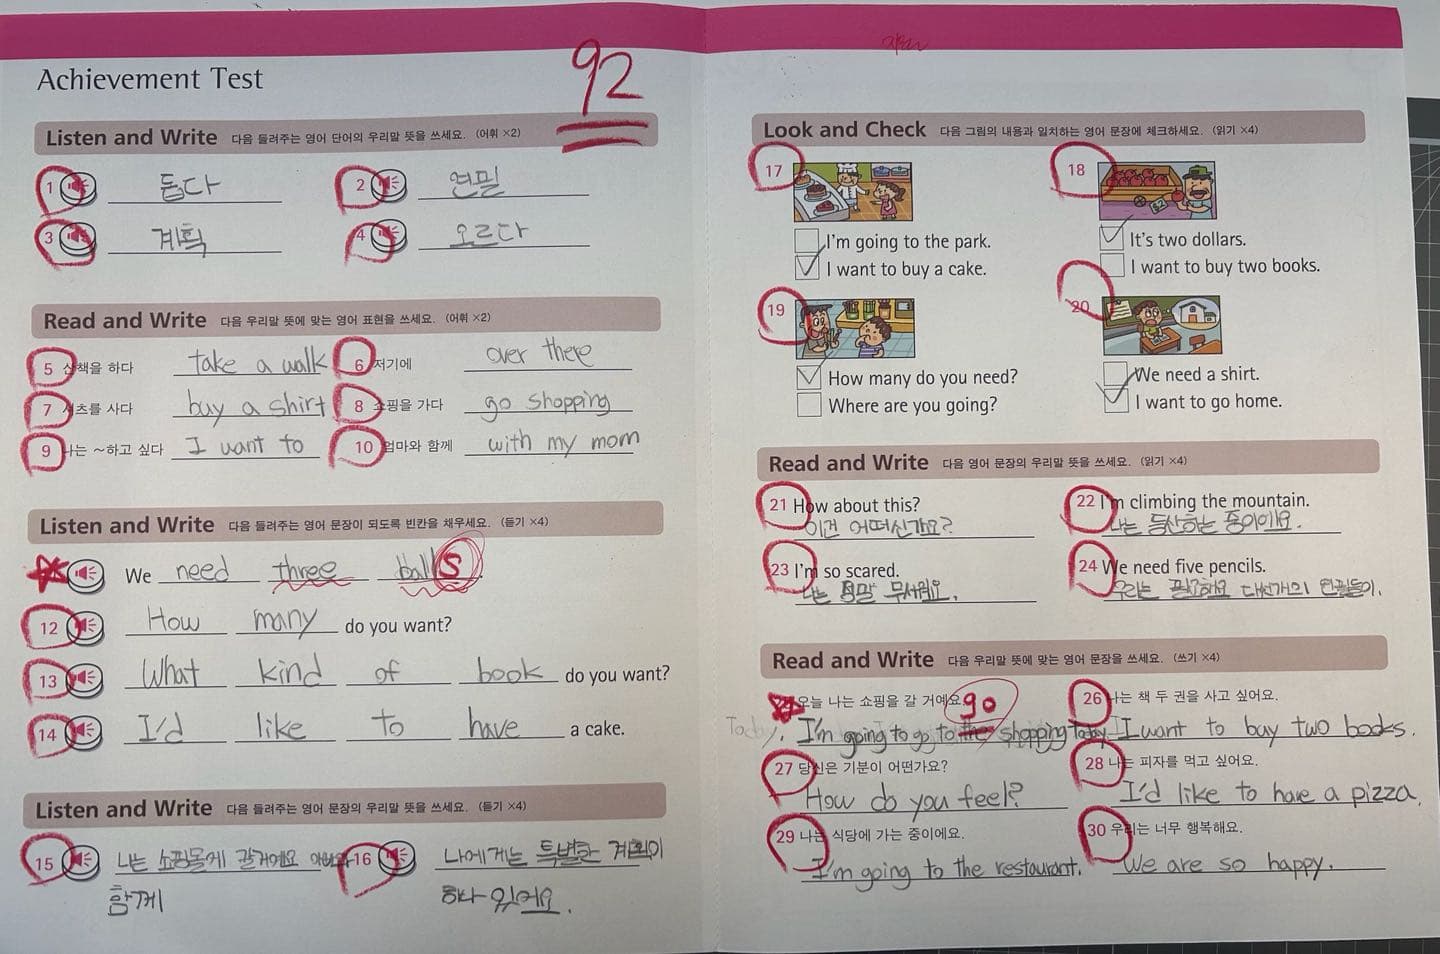 92
Achievement Test
Listen and Write 다음 들려주는 영어 단어의 우리말 뜻을 쓰세요. (어휘 ×2)
1 돕다 2 연필
3 계획 4 오르다
Read and Write 다음 우리말 뜻에 맞는 영어 표현을 쓰세요. (어휘 ×2)
5 산책을 하다 take a walk 6 저기에 over there
7 셔츠를 사다 buy a shirt 8 쇼핑을 가다 go shopping
9 나는 ~하고 싶다 I want to 10 엄마와 함께 with my mom
Listen and Write 다음 들려주는 영어 문장이 되도록 빈칸을 채우세요. (듣기 ×4)
We need three balls.
12 How many do you want?
13 What kind of book do you want?
14 I'd like to have a cake.
Listen and Write 다음 들려주는 영어 문장의 우리말 뜻을 쓰세요. (듣기 ×4)
15 나는 쇼핑몰에 갈거예요 아빠와 16 나에게는 특별한 계획이
함께 하나 있어요.
Look and Check 다음 그림의 내용과 일치하는 영어 문장에 체크하세요. (읽기 ×4)
17 18
I'm going to the park. It's two dollars.
I want to buy a cake. I want to buy two books.
19 20
How many do you need? We need a shirt.
Where are you going? I want to go home.
Read and Write 다음 영어 문장의 우리말 뜻을 쓰세요. (읽기 ×4)
21 How about this? 22 I'm climbing the mountain.
이건 어떠신가요? 나는 등산하는 중이에요.
23 I'm so scared. 24 We need five pencils.
나는 정말 무서워요. 우리는 필요해요 다섯개의 연필들이.
Read and Write 다음 우리말 뜻에 맞는 영어 문장을 쓰세요. (쓰기 ×4)
오늘 나는 쇼핑을 갈 거예요. go 26 나는 책 두 권을 사고 싶어요.
Today, I'm going to go to the shopping Today. I want to buy two books.
27 당신은 기분이 어떤가요? 28 나는 피자를 먹고 싶어요.
How do you feel? I'd like to have a pizza.
29 나는 식당에 가는 중이에요. 30 우리는 너무 행복해요.
I'm going to the restaurant. We are so happy.